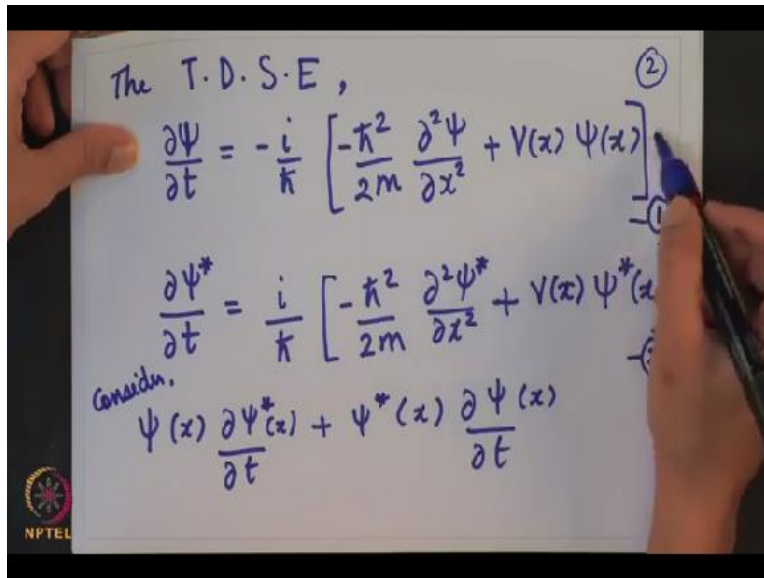 The T.D.S.E, ②
∂Ψ/∂t = -i/ħ [-ħ²/2m ∂²Ψ/∂x² + V(x) Ψ(x)]
-①
∂Ψ*/∂t = i/ħ [-ħ²/2m ∂²Ψ*/∂x² + V(x) Ψ*(x
Consider,
Ψ(x) ∂Ψ*(x)/∂t + Ψ*(x) ∂Ψ(x)/∂t
NPTEL